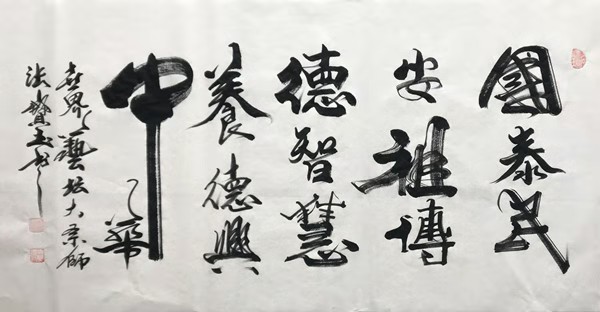 國泰民
安祖傳
德智慧
養德興
中華
世界藝坛大宗師
法贊